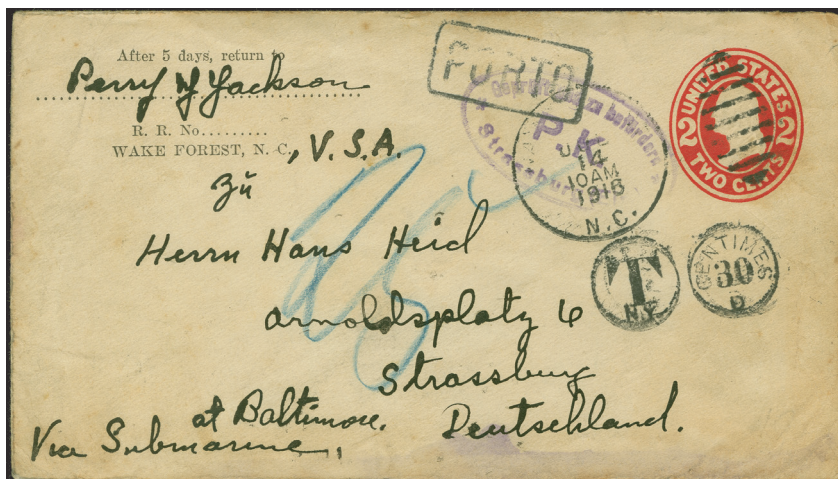 After 5 days, return to
Perry Y Jackson
R. R. No.........
WAKE FOREST, N. C., U.S.A.
PORTO
P.K.
Strassburg
14
10AM
1916
N.C.
UNITED STATES
2 2
TWO CENTS
T
N.Y.
CENTIMES
30
D
zu
Herrn Hans Heid
Arnoldsplatz 6
Strassburg
Deutschland.
Via Submarine,
at Baltimore.